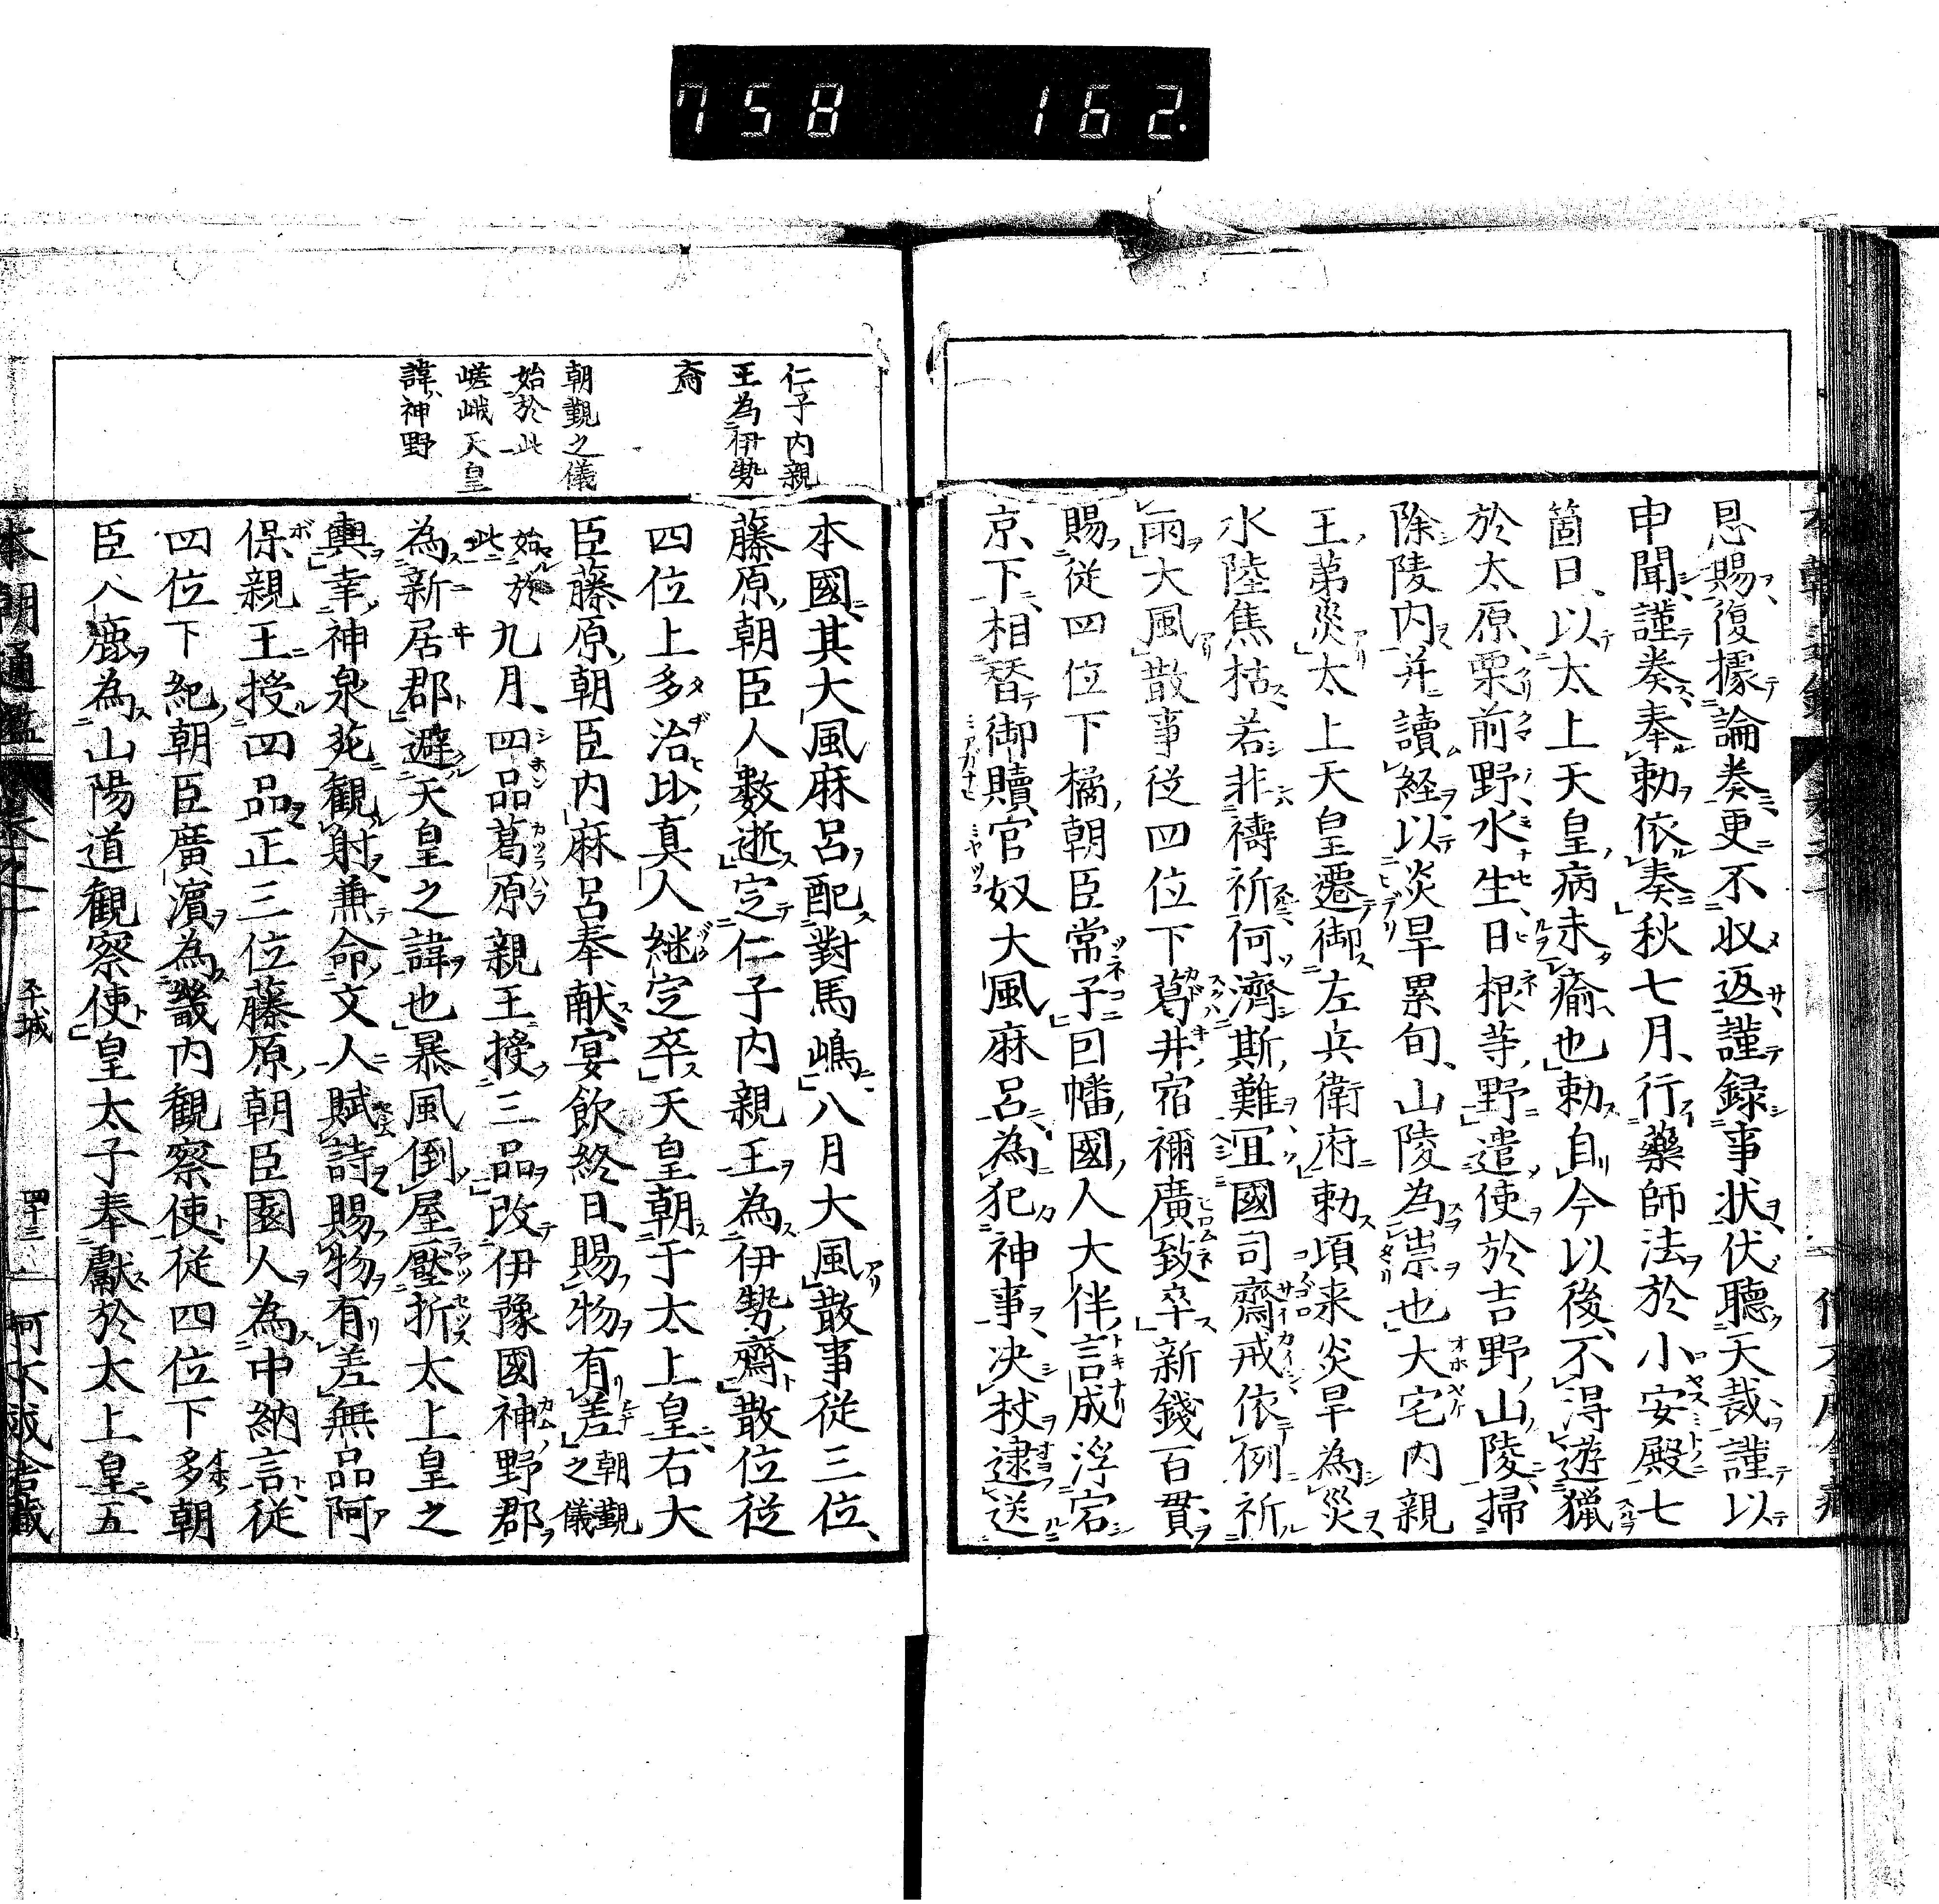 758 162.
恩賜、復據論奏更不收返、謹録事状、伏聽天裁、謹以
申聞、謹奏、奉勅依奏、秋七月、行藥師法於小安殿七
箇日、以太上天皇病未瘉也、勅自今以後、不得遊獵
於太原、栗前野、水生、日根等野、遣使於吉野山陵、掃
除陵内、并讀經、以炎旱累旬、山陵為祟也、大宅内親
王第災、太上天皇遷御左兵衛府、勅頃来炎旱為災、
水陸焦枯、若非禱祈、何濟斯難、宜國司齋戒依例祈
雨、大風、散事従四位下葛井宿禰廣致卒、新錢百貫、
賜従四位下橘朝臣常子、因幡國人大伴吉成浮宕
京下、相替御贖、官奴大風麻呂、為犯神事、决杖逮送
仁子内親
王為伊勢
齋
朝覲之儀
始於此
嵯峨天皇
諱神野
本國、其大風麻呂配對馬嶋、八月大風、散事従三位、
藤原朝臣人數逝、定仁子内親王為伊勢齋、散位従
四位上多治比真人継定卒、天皇朝于太上皇、右大
臣藤原朝臣内麻呂奉献、宴飲終日、賜物有差、朝覲之儀
始於此 九月、四品葛原親王授三品、改伊豫國神野郡
為新居郡、避天皇之諱也、暴風倒屋壓折太上皇之
輿、幸神泉苑観射、兼命文人賦詩、賜物有差、無品阿
保親王授四品、正三位藤原朝臣園人為中納言、従
四位下紀朝臣廣濱為畿内観察使、従四位下多朝
臣入鹿為山陽道観察使、皇太子奉獻於太上皇、五
本朝通鑑 平城 四十三